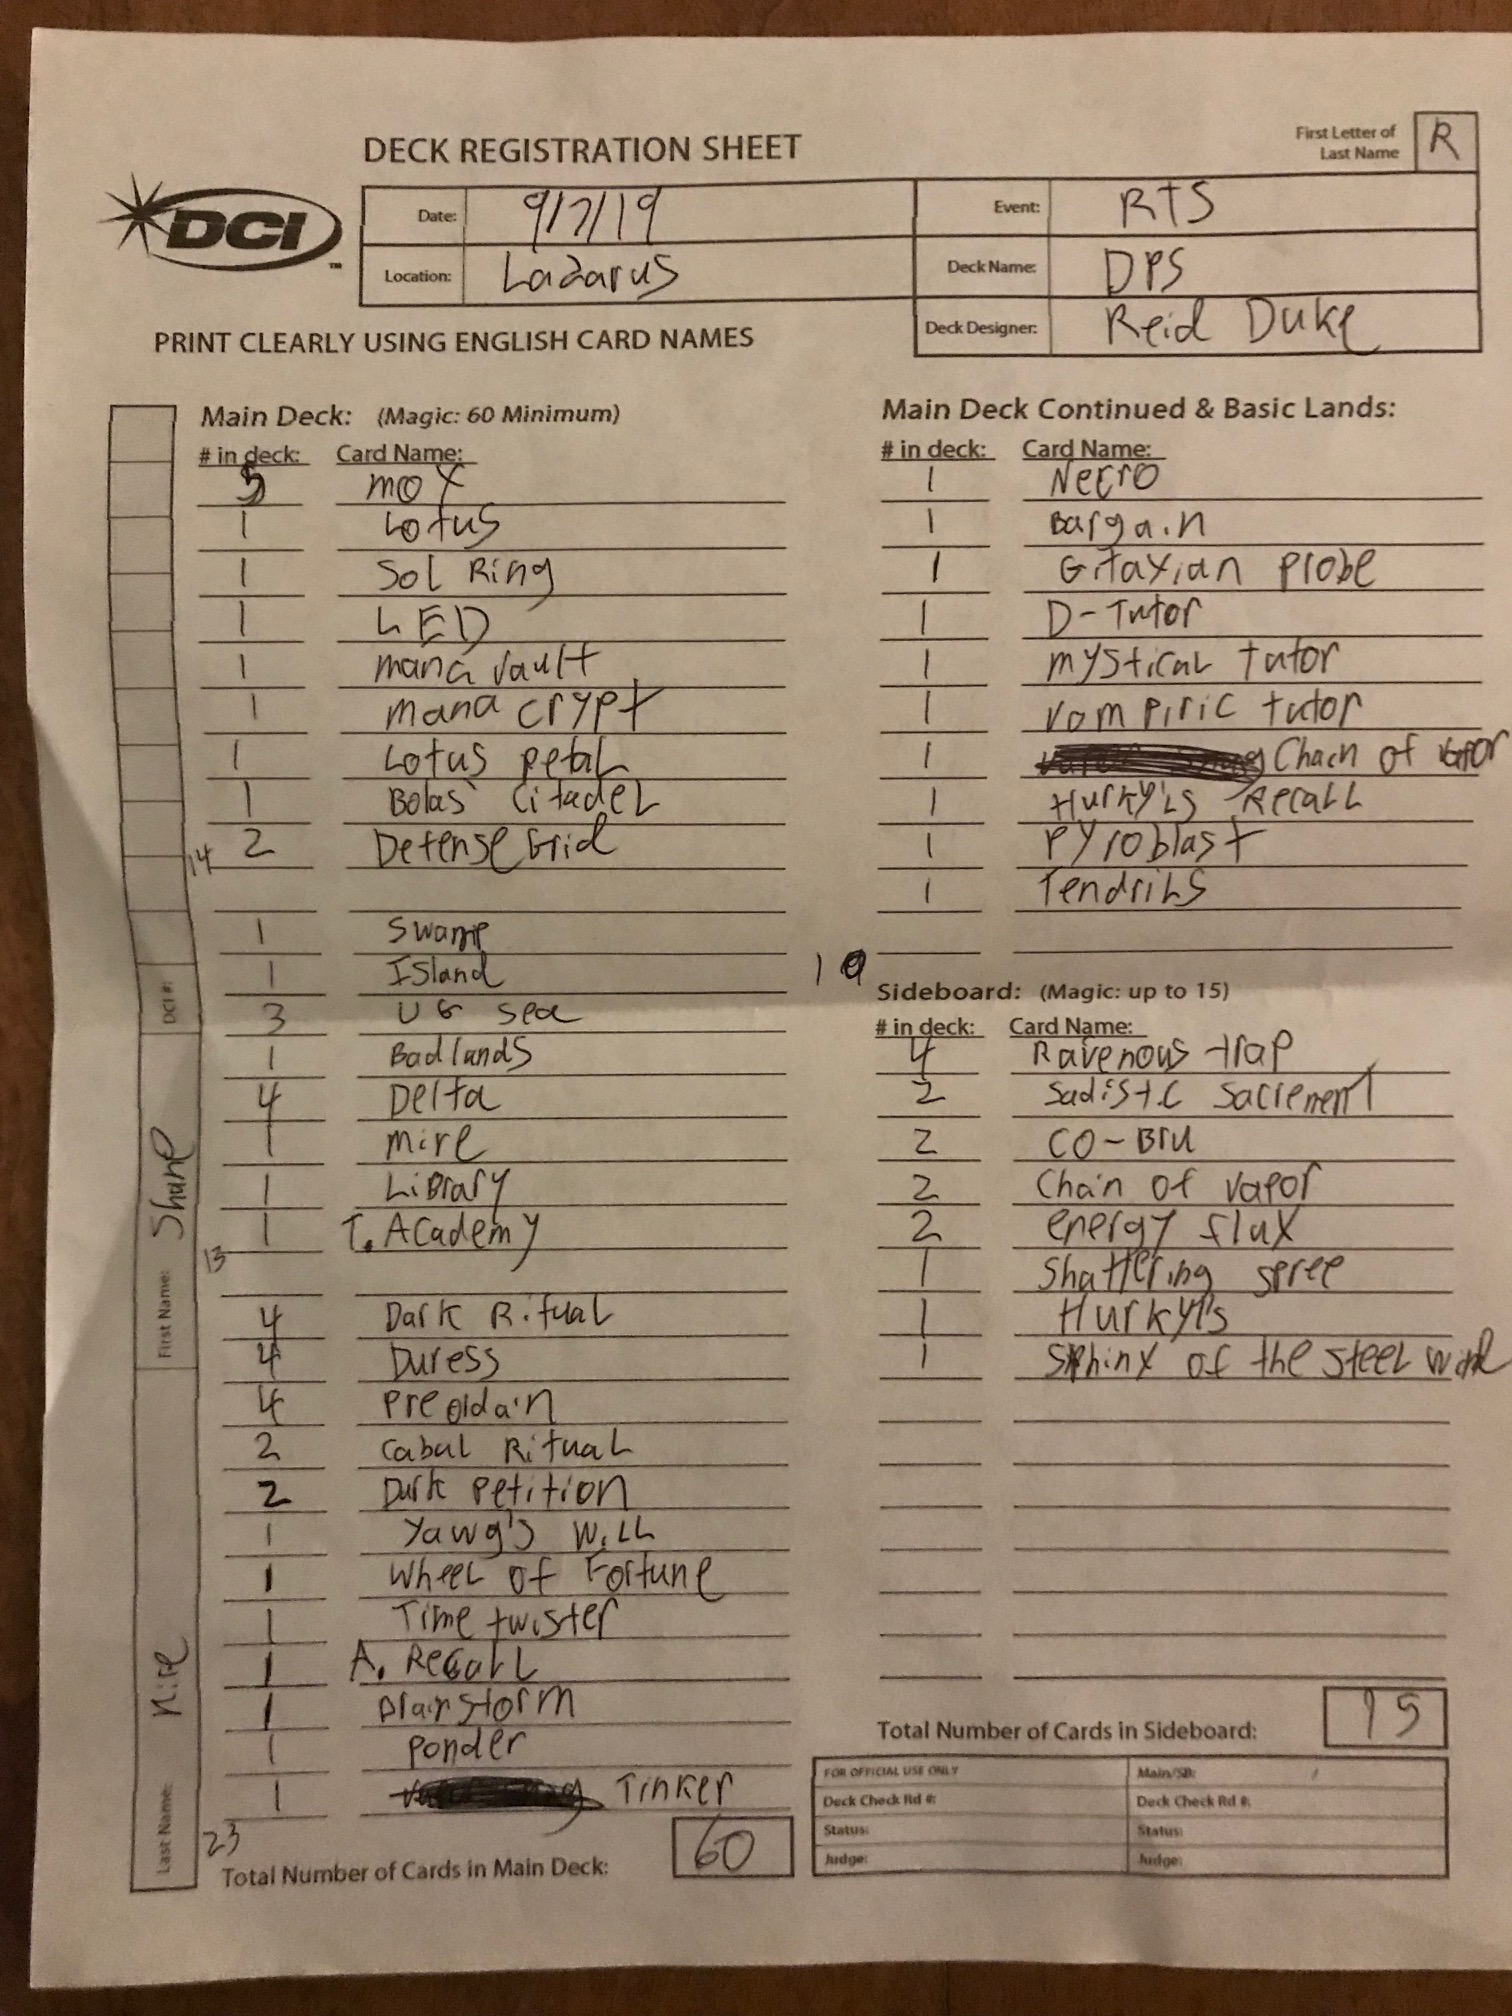 DECK REGISTRATION SHEET
First Letter of Last Name R
DCI
Date: 9/7/19
Event: RTS
Location: Lazarus
Deck Name: DPS
Deck Designer: Reid Duke
PRINT CLEARLY USING ENGLISH CARD NAMES
Main Deck: (Magic: 60 Minimum)
# in deck: Card Name:
5 mox
1 Lotus
1 Sol Ring
1 LED
1 mana vault
1 mana crypt
1 Lotus petal
1 Bolas' Citadel
2 Defense Grid
14
1 Swamp
1 Island
3 U G sea
1 Badlands
4 Delta
1 mire
1 Library
1 T. Academy
13
4 Dark Ritual
4 Duress
4 Preoldain
2 Cabal Ritual
2 Dark Petition
1 Yawg's Will
1 Wheel of Fortune
1 Time twister
1 A. Recall
1 Brainstorm
1 Ponder
1 Tinker
23
Total Number of Cards in Main Deck: 60
Main Deck Continued & Basic Lands:
# in deck: Card Name:
1 Necro
1 Bargain
1 Gitaxian Probe
1 D-Tutor
1 mystical tutor
1 vampiric tutor
1 Chain of vapor
1 Hurky'ls Recall
1 Pyroblast
1 Tendrils
10
Sideboard: (Magic: up to 15)
# in deck: Card Name:
4 Ravenous trap
2 Sadistc Sacrement
2 CO-Bru
2 Chain of vapor
2 energy flux
1 Shattering spree
1 Hurkyl's
1 Sphinx of the steel wind
Total Number of Cards in Sideboard: 15
FOR OFFICIAL USE ONLY
Main/SB: /
Deck Check Rd #:
Deck Check Rd #:
Status:
Status:
Judge:
Judge:
DCI #:
First Name: Shane
Last Name: